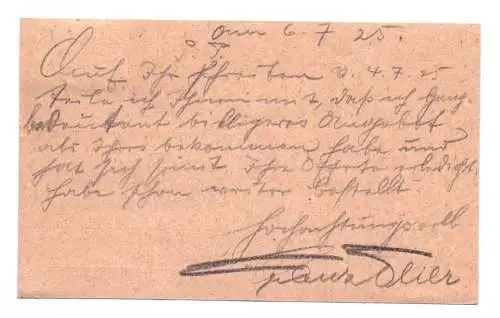 den 6.7 25.
P. P.
Auf Ihr Schreiben v. 4.7.25
teile ich Ihnen mit, daß ich ganz
bedeutent billigeres Angebot
als Ihres bekommen habe und
hat sich somit Ihre Offerte erledigt.
habe schon weiter bestellt
Hochachtungsvoll